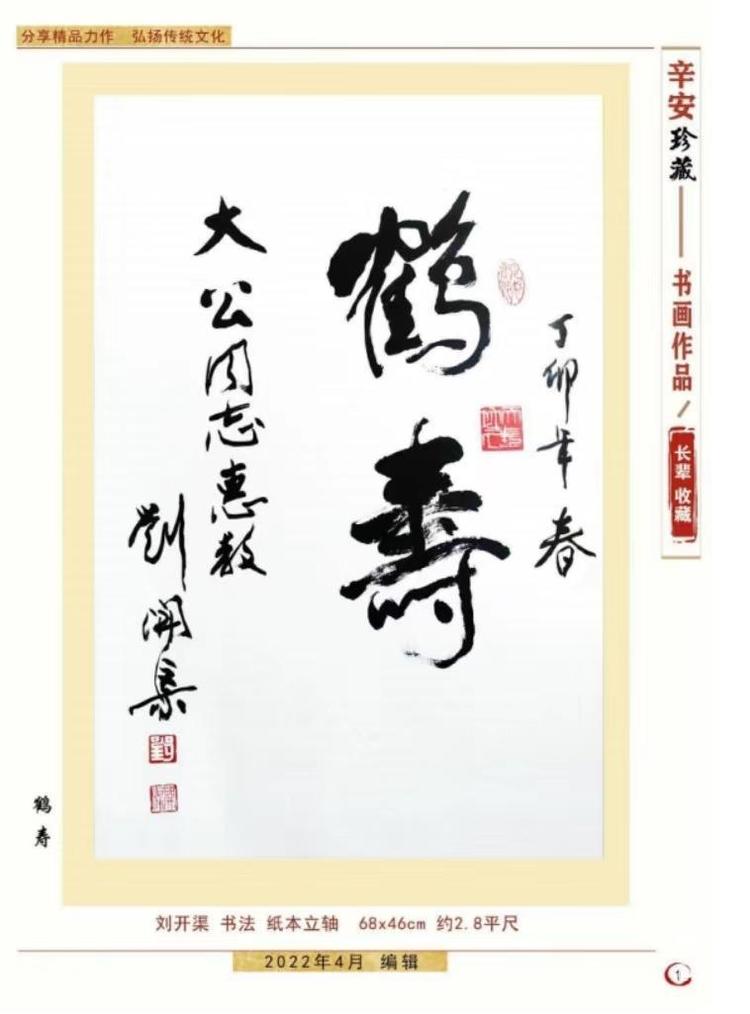 分享精品力作 弘扬传统文化
辛安珍藏——书画作品/
长辈收藏
丁卯年春
鹤寿
大公同志惠教
劉開渠
鹤寿
刘开渠 书法 纸本立轴 68x46cm 约2.8平尺
2022年4月 编辑
1